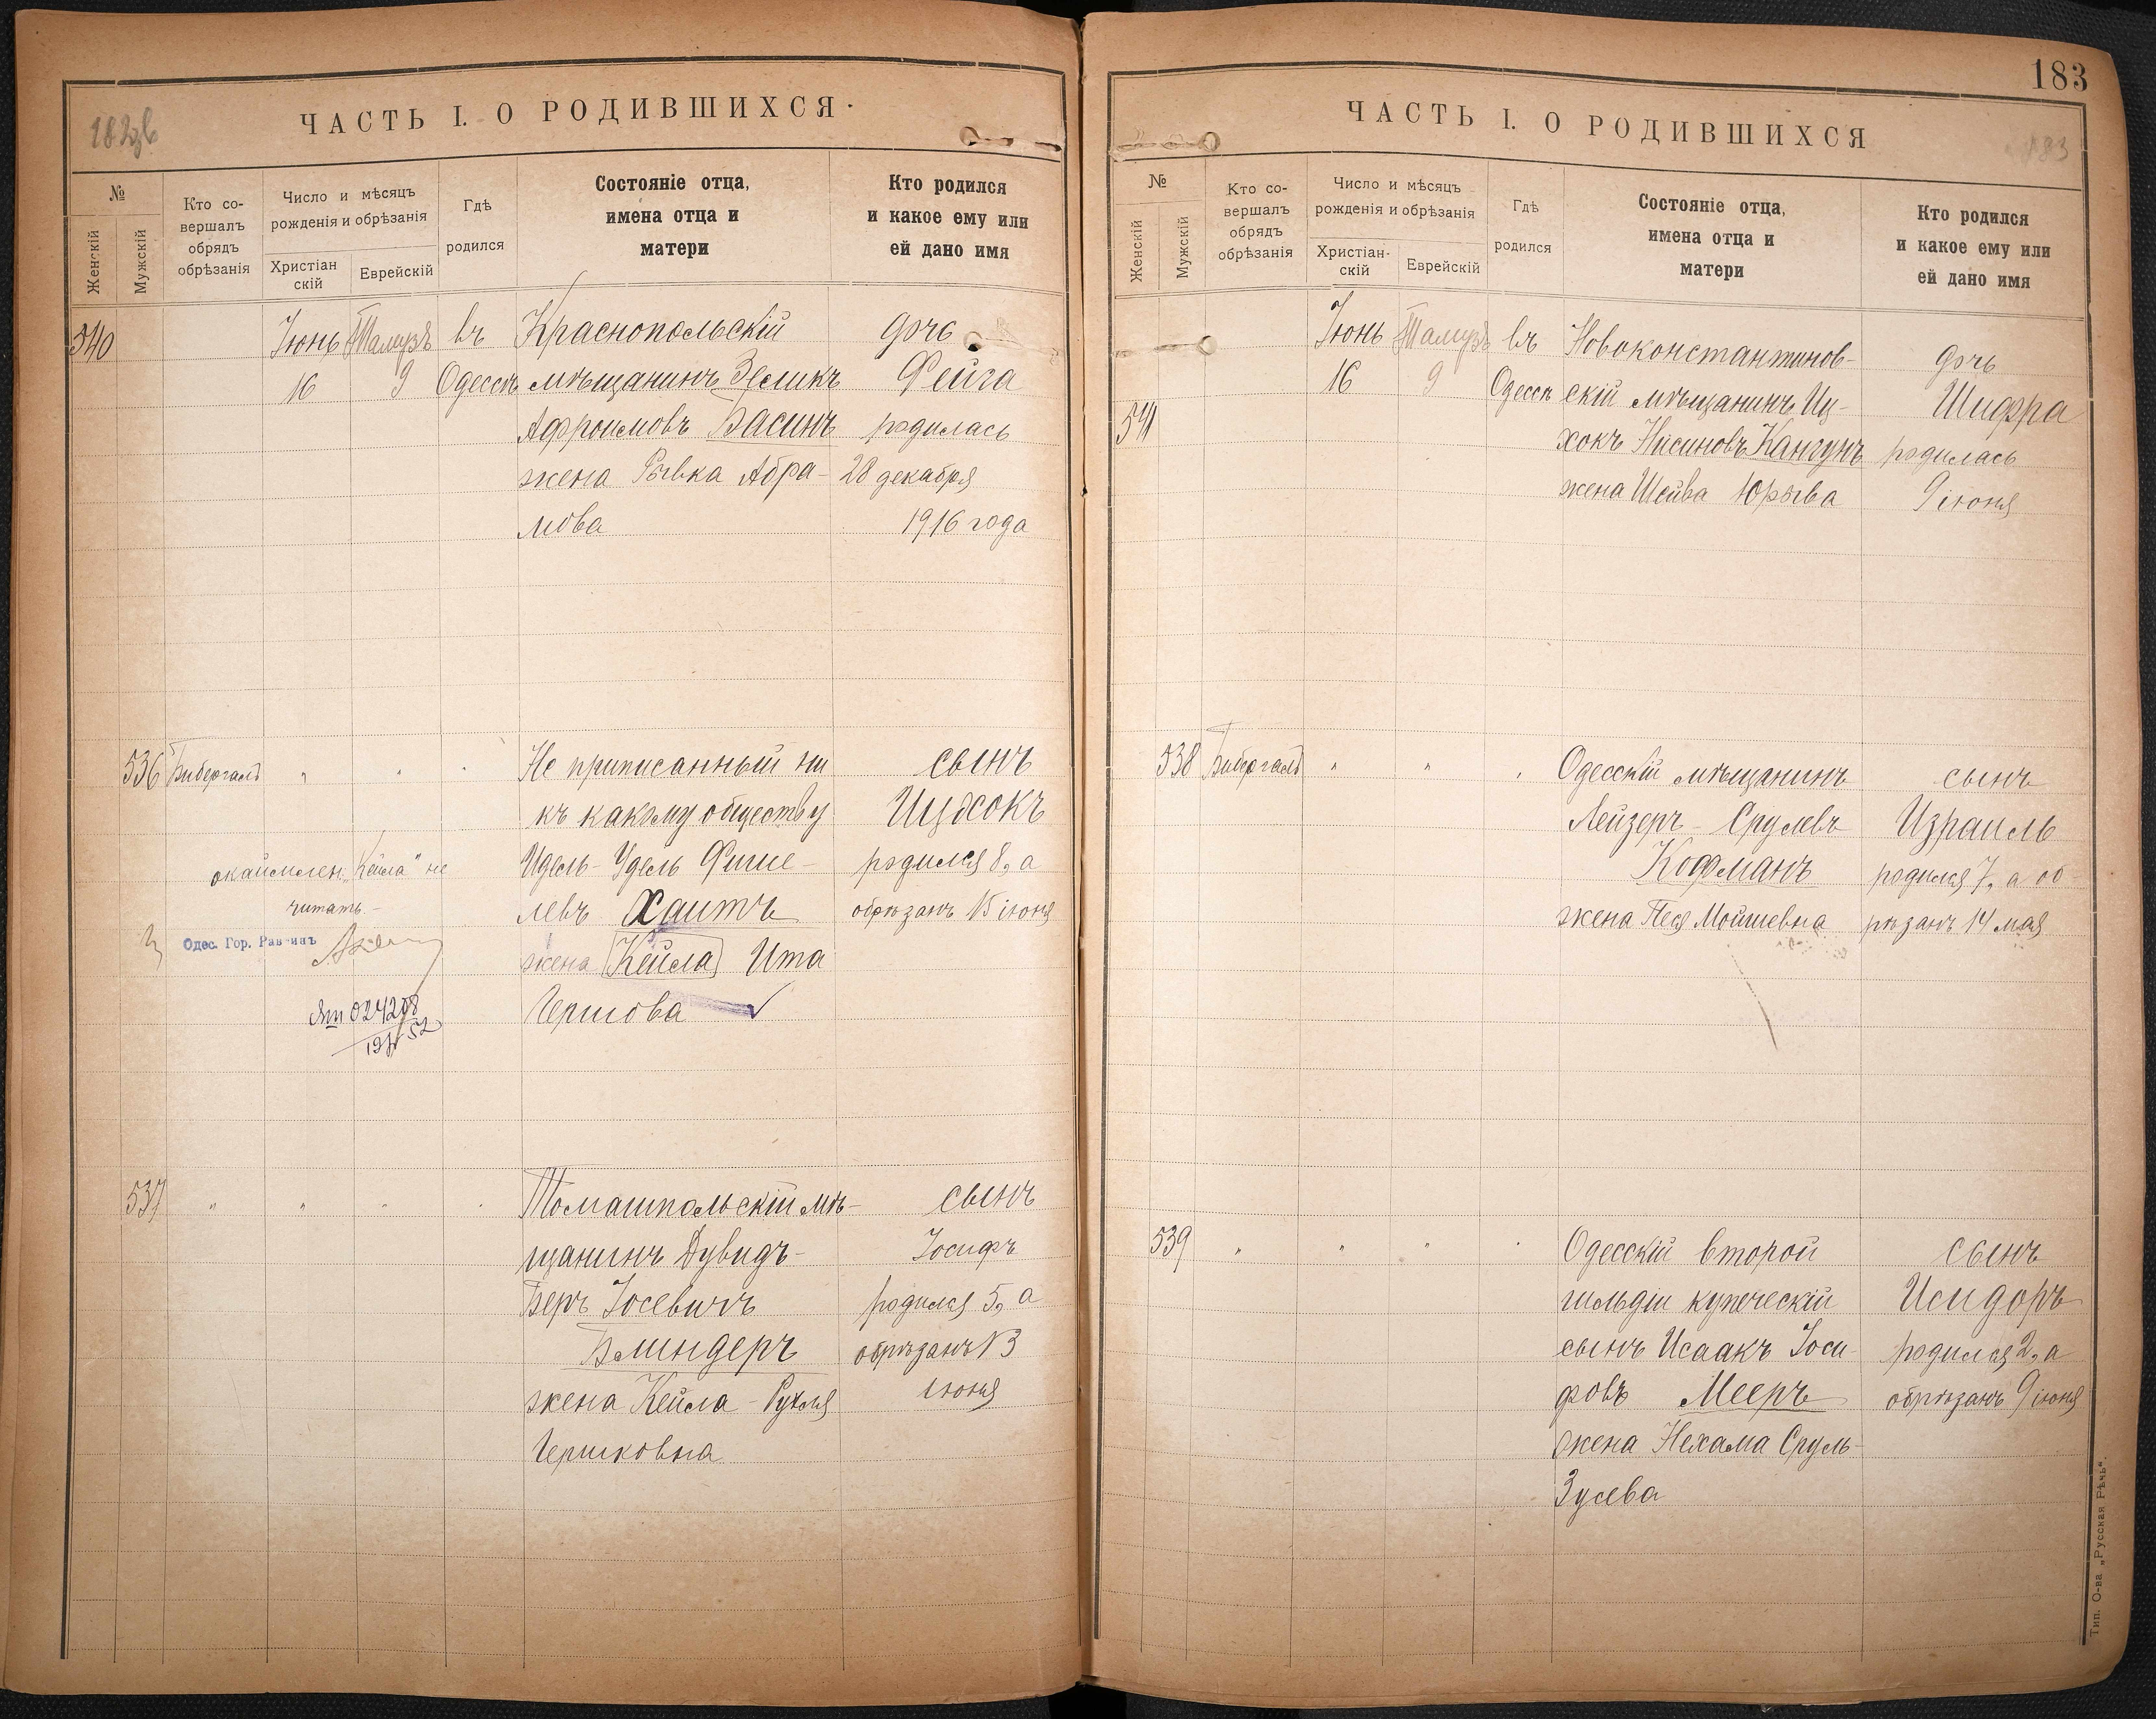 182 об
ЧАСТЬ I. О РОДИВШИХСЯ.
№
Женскій
Мужскій
Кто со-
вершалъ
обрядъ
обрѣзанія
Число и мѣсяцъ
рожденія и обрѣзанія
Христіан
скій
Еврейскій
Гдѣ
родился
Состояніе отца,
имена отца и
матери
Кто родился
и какое ему или
ей дано имя
540 Іюнь Тамузъ въ Краснопольскій дочь
16 9 Одессѣ мѣщанинъ Зеликъ Фейга
Афроимовъ Васинъ родилась
жена Рывка Абра- 28 декабря
мова 1916 года
536 Бибергалъ " " Не приписанный ни сынъ
къ какому обществу Ицхокъ
Идель-Удель Фише- родился 8, а
левъ Хаитъ обрѣзанъ 15 іюня
жена Кейла Ита
Гершова
окаймлен. „Кейла" не
читать.-
Одес. Гор. Раввинъ
024208
537 " " " Томашпольскій мѣ- сынъ
щанинъ Дувидъ- Іосифъ
Беръ Іосевичъ родился 5, а
Блиндеръ обрѣзанъ 13
жена Кейла-Рухля іюня
Гершковна
183
ЧАСТЬ I. О РОДИВШИХСЯ
183
№
Женскій
Мужскій
Кто со-
вершалъ
обрядъ
обрѣзанія
Число и мѣсяцъ
рожденія и обрѣзанія
Христіан-
скій
Еврейскій
Гдѣ
родился
Состояніе отца,
имена отца и
матери
Кто родился
и какое ему или
ей дано имя
Іюнь Тамузъ въ Новоконстантинов- дочь
16 9 Одессѣ скій мѣщанинъ Иц- Шифра
541 хокъ Нисиновъ Кангунъ родилась
жена Шейва Юрьева 9 іюня
538 Бибергалъ " " Одесскій мѣщанинъ сынъ
Лейзеръ-Срулевъ Израиль
Кофманъ родился 7, а об-
жена Песя Мойшевна рѣзанъ 14 мая
539 " " " Одесскій второй сынъ
гильдіи купеческій Исидоръ
сынъ Исаакъ Іоси- родился 2, а
фовъ Мееръ обрѣзанъ 9 іюня
жена Нехама Сруль-
Зусева
Тип. О-ва „Русская Рѣчь".